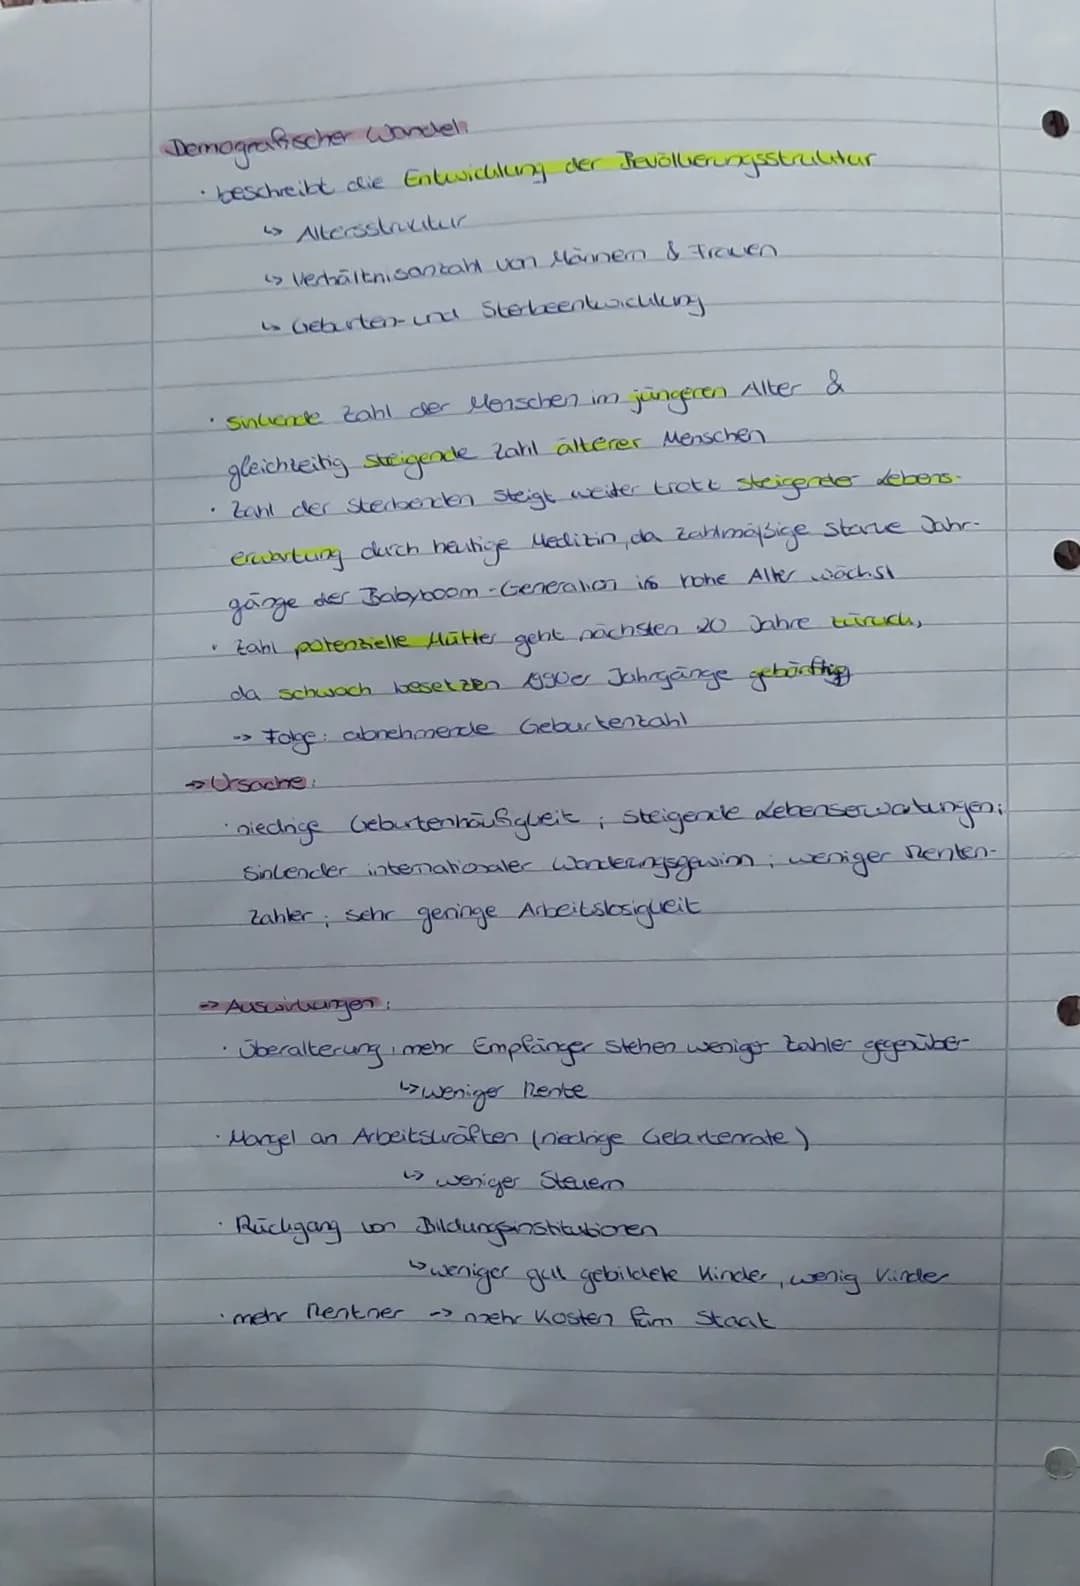 Demografischer Wandel:
· beschreibt die Entwicklung der Bevölkerungsstruktur
↳ Altersstruktur
↳ Verhältnisanzahl von Männern & Frauen
↳ Geburten- und Sterbeentwicklung
· sinkende Zahl der Menschen im jüngeren Alter &
gleichzeitig steigende Zahl älterer Menschen
· Zahl der Sterbenden steigt weiter trotz steigender Lebens-
erwartung durch heutige Medizin, da zahlmäßige starke Jahr-
gänge der Babyboom-Generation ins hohe Alter wächst
· Zahl potenzielle Mütter geht nächsten 20 Jahre zurück,
da schwach besetzen 1990er Jahrgänge gebärfähig
-> Folge: abnehmende Geburtenzahl
-> Ursache:
· niedrige Geburtenhäufigkeit ; steigende Lebenserwartungen;
sinkender internationaler Wanderungsgewinn ; weniger Renten-
zahler ; sehr geringe Arbeitslosigkeit
-> Auswirkungen:
· Überalterung, mehr Empfänger stehen weniger Zahler gegenüber
↳ weniger Rente
· Mangel an Arbeitskräften (niedrige Geburtenrate)
↳ weniger Steuern
· Rückgang von Bildungsinstitutionen
↳ weniger gut gebildete Kinder, wenig Kinder
· mehr Rentner -> mehr Kosten fürn Staat